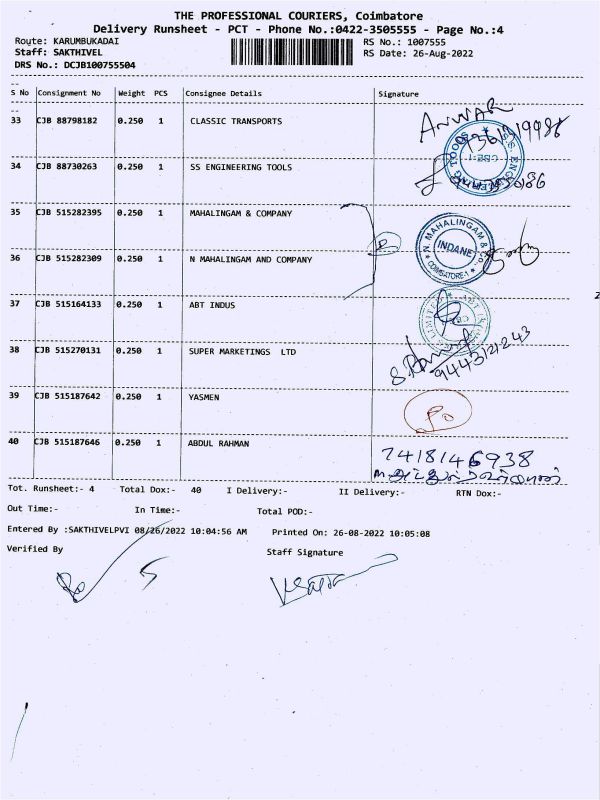 THE PROFESSIONAL COURIERS, Coimbatore
Delivery Runsheet - PCT - Phone No.:0422-3505555 - Page No.:4
Route: KARUMBUKADAI RS No.: 1007555
Staff: SAKTHIVEL RS Date: 26-Aug-2022
DRS No.: DCJB100755504
S No Consignment No Weight PCS Consignee Details Signature
33 CJB 88798182 0.250 1 CLASSIC TRANSPORTS ANWAR
34 CJB 88730263 0.250 1 SS ENGINEERING TOOLS
35 CJB 515282395 0.250 1 MAHALINGAM & COMPANY N. MAHALINGAM & Co.
INDANE
COIMBATORE-1
36 CJB 515282309 0.250 1 N MAHALINGAM AND COMPANY
37 CJB 515164133 0.250 1 ABT INDUS
38 CJB 515270131 0.250 1 SUPER MARKETINGS LTD 9443121243
39 CJB 515187642 0.250 1 YASMEN
40 CJB 515187646 0.250 1 ABDUL RAHMAN 7418146938
Tot. Runsheet:- 4 Total Dox:- 40 I Delivery:- II Delivery:- RTN Dox:-
Out Time:- In Time:- Total POD:-
Entered By :SAKTHIVELPVI 08/26/2022 10:04:56 AM Printed On: 26-08-2022 10:05:08
Verified By Staff Signature